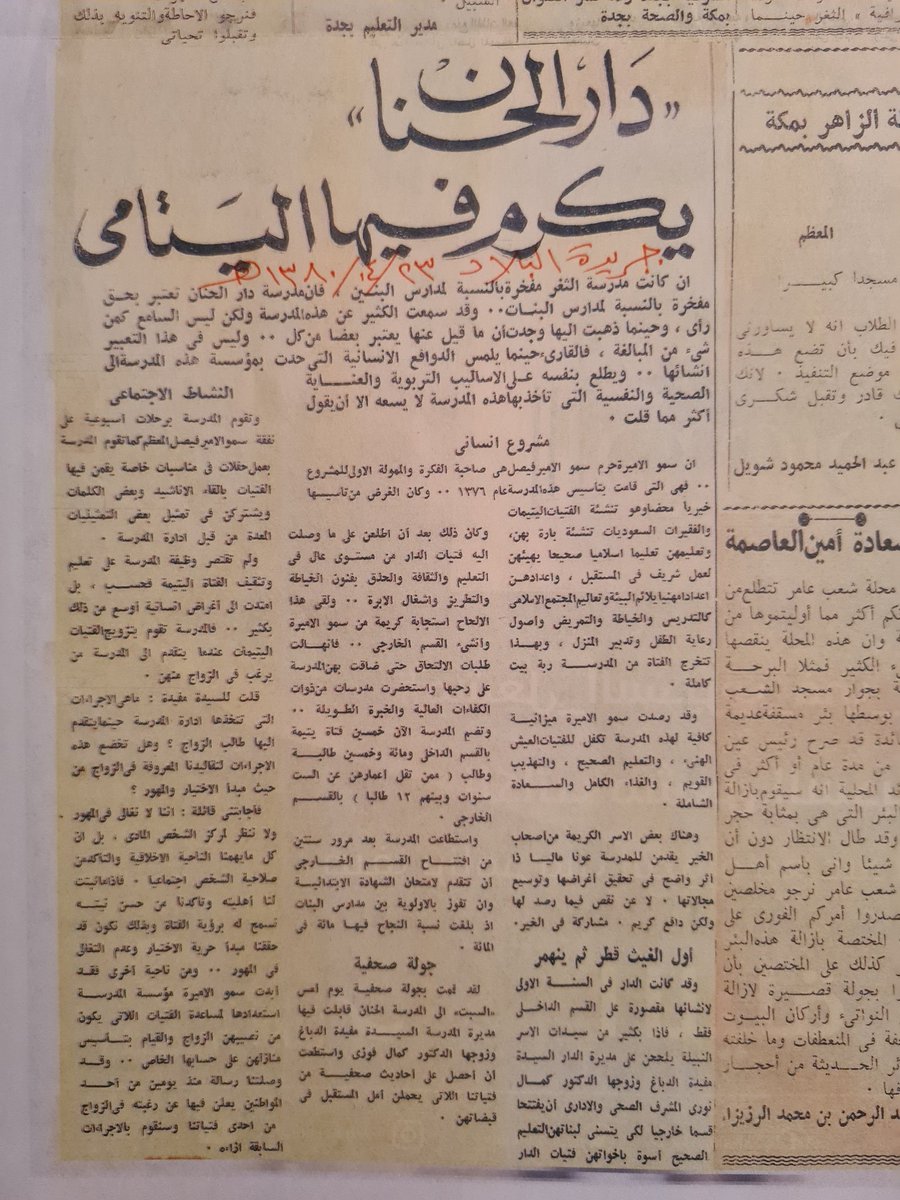 فنرجو الاحاطة والتنويه بذلك
وتقبلوا تحياتى
مدير التعليم بجدة
بمكة والصحة بجدة
« دار الحنان »
يكرم فيها اليتامى
جريدة البلاد ٢٣/٤/١٣٨٠هـ
ان كانت مدرسة الثغر مفخرة بالنسبة لمدارس البنين ، فان مدرسة دار الحنان تعتبر بحق
مفخرة بالنسبة لمدارس البنات ٠٠ وقد سمعت الكثير عن هذه المدرسة ولكن ليس السامع كمن
رأى ، وحينما ذهبت اليها وجدت أن ما قيل عنها يعتبر بعضا من كل ٠٠ وليس فى هذا التعبير
شىء من المبالغة ، فالقارىء حينما يلمس الدوافع الانسانية التى حدت بمؤسسة هذه المدرسة الى
انشائها ٠٠ ويطلع بنفسه على الاساليب التربوية والعناية
الصحية والنفسية التى تأخذ بها هذه المدرسة لا يسعه الا أن يقول
أكثر مما قلت ٠
مشروع انسانى
ان سمو الاميرة حرم سمو الامير فيصل هى صاحبة الفكرة والممولة الاولى للمشروع
٠٠ فهى التى قامت بتأسيس هذه المدرسة عام ١٣٧٦ ٠٠ وكان الغرض من تأسيسها
خيريا محضا وهو تنشئة الفتيات اليتيمات
والفقيرات السعوديات تنشئة بارة بهن،
وتعليمهن تعليما اسلاميا صحيحا يهيئهن
لعمل شريف فى المستقبل ، واعدادهن
اعدادا مهنيا يلائم البيئة وتعاليم المجتمع الاسلامى
كالتدريس والخياطة والتمريض وأصول
رعاية الطفل وتدبير المنزل ، وبهذا
تتخرج الفتاة من المدرسة ربة بيت
كاملة ٠
وقد رصدت سمو الاميرة ميزانية
كافية لهذه المدرسة تكفل للفتيات العيش
الهنىء ، والتعليم الصحيح ، والتهذيب
القويم ، والغذاء الكامل والسعادة
الشاملة ٠
وهناك بعض الاسر الكريمة من اصحاب
الخير يقدمن للمدرسة عونا ماليا ذا
اثر واضح فى تحقيق أغراضها وتوسيع
مجالاتها ٠ لا عن نقص فيما رصد لها
ولكن دافع كريم ٠ مشاركة فى الخير٠
أول الغيث قطر ثم ينهمر
وقد كانت الدار فى السنة الاولى
لانشائها مقصورة على القسم الداخلى
فقط ، فاذا بكثير من سيدات الاسر
النبيلة يلححن على مديرة الدار السيدة
مفيدة الدباغ وزوجها الدكتور كمال
نورى المشرف الصحى والادارى أن يفتتحا
قسما خارجيا لكى يتسنى لبناتهن التعليم
الصحيح أسوة بأخواتهن فتيات الدار
وكان ذلك بعد أن اطلعن على ما وصلت
اليه فتيات الدار من مستوى عال فى
التعليم والثقافة والحذق بفنون الخياطة
والتطريز واشغال الابرة ٠٠ ولقى هذا
الالحاح استجابة كريمة من سمو الاميرة
وأنشىء القسم الخارجى ٠٠ فانهالت
طلبات الالتحاق حتى ضاقت بهن المدرسة
على رحبها واستحضرت مدرسات من ذوات
الكفاءات العالية والخبرة الطويلة ٠٠
وتضم المدرسة الآن خمسين فتاة يتيمة
بالقسم الداخلى ومائة وخمسين طالبة
وطالب ( ممن تقل أعمارهن عن الست
سنوات وبينهم ١٢ طالبا ) بالقسم
الخارجى ٠
واستطاعت المدرسة بعد مرور سنتين
من افتتاح القسم الخارجى
ان تتقدم لامتحان الشهادة الابتدائية
وان تفوز بالاولوية بين مدارس البنات
اذ بلغت نسبة النجاح فيها مائة فى
المائة ٠
جولة صحفية
لقد قمت بجولة صحفية يوم أمس
«السبت» الى المدرسة الحنان قابلت فيها
مديرة المدرسة السيدة مفيدة الدباغ
وزوجها الدكتور كمال فوزى واستطعت
أن أحصل على أحاديث صحفية من
فتياتنا اللاتى يحملن أمل المستقبل فى
قبضاتهن ٠
النشاط الاجتماعى
وتقوم المدرسة برحلات أسبوعية على
نفقة سمو الامير فيصل المعظم كما تقوم المدرسة
بعمل حفلات فى مناسبات خاصة يقمن فيها
الفتيات بالقاء الاناشيد وبعض الكلمات
ويشتركن فى تمثيل بعض التمثيليات
المعدة من قبل ادارة المدرسة ٠
ولم تقتصر وظيفة المدرسة على تعليم
وتثقيف الفتاة اليتيمة فحسب ، بل
امتدت الى أغراض انسانية أوسع من ذلك
بكثير ٠٠ فالمدرسة تقوم بتزويج الفتيات
اليتيمات عندما يتقدم الى المدرسة من
يرغب فى الزواج منهن ٠
قلت للسيدة مفيدة : ماهى الاجراءات
التى تتخذها ادارة المدرسة حينما يتقدم
اليها طالب الزواج ؟ وهل تخضع هذه
الاجراءات لتقاليدنا المعروفة فى الزواج من
حيث مبدأ الاختيار والمهور ؟
فأجابتنى قائلة : اننا لا نغالى فى المهور
ولا ننظر لمركز الشخص المادى ، بل ان
كل ما يهمنا الناحية الاخلاقية والتأكد من
صلاحية الشخص اجتماعيا ٠ فاذا ما ثبتت
لنا أهليته وتأكدنا من حسن نيته
نسمح له برؤية الفتاة وبذلك نكون قد
حققنا مبدأ حرية الاختيار وعدم التغالى
فى المهور ٠٠ ومن ناحية أخرى فقد
أبدت سمو الاميرة مؤسسة المدرسة
استعدادها لمساعدة الفتيات اللاتى يكون
من نصيبهن الزواج والقيام بتأسيس
منازلهن على حسابها الخاص ٠٠ وقد
وصلتنا رسالة منذ يومين من أحد
المواطنين يعلن فيها عن رغبته فى الزواج
من احدى فتياتنا وسنقوم بالاجراءات
السابقة ازاءه ٠
الزاهر بمكة
المعظم
مسجدا كبير
الطلاب انه لا يساورنى
فيك بأن تضع هذه
موضع التنفيذ ٠ لانك
قادر وتقبل شكرى
عبد الحميد محمود شويل
سعادة أمين العاصمة
محلة شعب عامر تتطلع من
أكثر مما أوليتموها من
وان هذه المحلة ينقصها
الكثير فمثلا البرحة
بجوار مسجد الشعب
بوسطها بئر مسقفة عديمة
قد صرح رئيس عين
من مدة عام أو أكثر فى
المحلية انه سيقوم بازالة
البئر التى هى بمثابة حجر
وقد طال الانتظار دون أن
شيئا وانى باسم أهل
شعب عامر نرجو مخلصين
أمركم الفورى على
المختصة بازالة هذه البئر
كذلك على المختصين بأن
بجولة قصيرة لازالة
النواتىء وأركان البيوت
فى المنعطفات وما خلفته
الحديثة من أحجار
الرحمن بن محمد